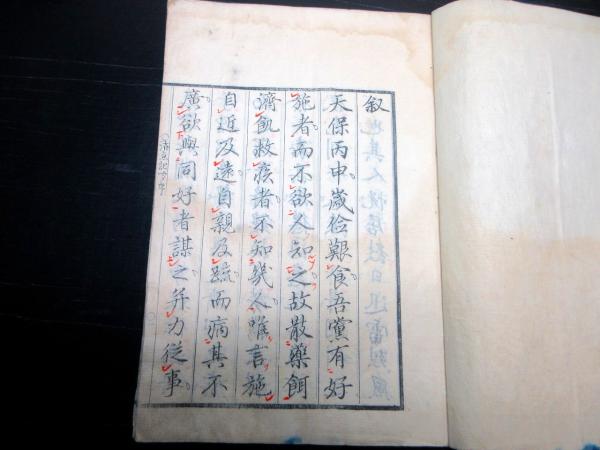 叙
天保丙申歳俭艱食吾黨有好
施者而不欲人知之故散藥餌
濟飢救疾者不知幾人唯言施
自近及遠自親及疏而病其不
廣欲與同好者謀之并力従事